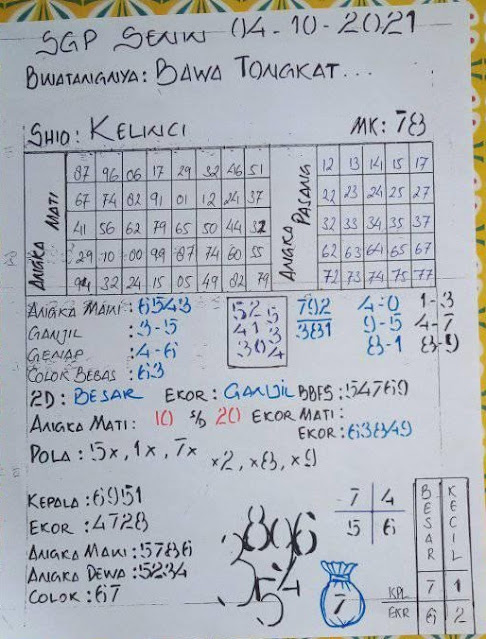 SGP SENIN 04-10-2021
BINATANGNYA: BAWA TONGKAT...
SHIO: KELINCI MK: 78
ANGKA MATI
87 96 06 17 29 32 46 51
67 74 82 91 01 12 24 37
41 56 62 79 65 50 44 32
29 10 00 99 87 74 60 55
94 32 24 15 05 49 82 79
ANGKA PASANG
12 13 14 15 17
22 23 24 25 27
32 33 34 35 37
62 63 64 65 67
72 73 74 75 77
ANGKA MAIN: 6543
GANJIL: 3-5
GENAP: 4-6
COLOK BEBAS: 63
525
413
304
792
381
4-0 1-3
9-5 4-7
8-1 8-9
2D: BESAR EKOR: GANJIL BBFS: 54769
ANGKA MATI: 10 s/D 20 EKOR MATI:
EKOR: 63849
POLA: 5x, 1x, 7x x2, x8, x9
KEPALA: 6951
EKOR: 4728
ANGKA MAIN: 5786
ANGKA DEWA: 5234
COLOK: 67
806
354
7 4
5 6
7
BESAR KECIL
KPL 7 1
EKR 6 2